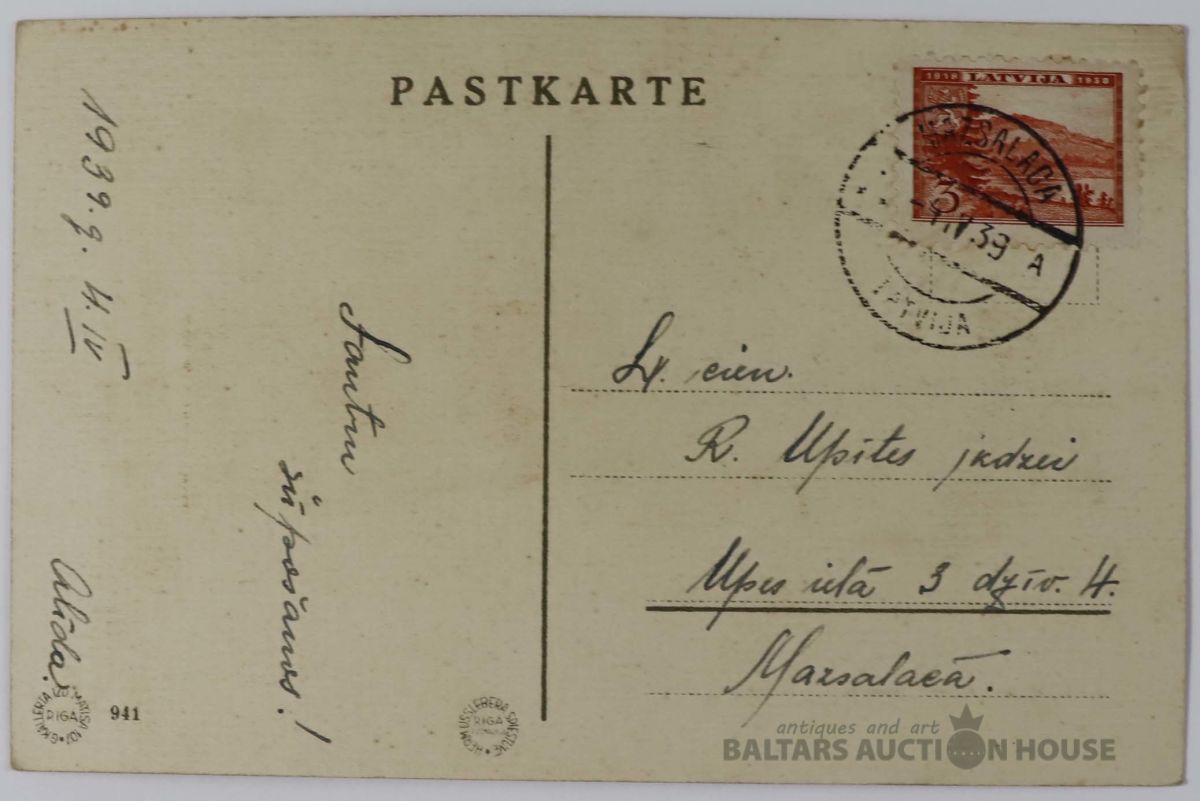 PASTKARTE
1918 LATVIJA 1938
3
MAZSALACA
-4 IV 39
A
LATVIJA
1939. g. 4. IV
Jautru
šūpošanos!
Alīda.
Lt. cien.
R. Upītes jkdzei
Upes ielā 3 dzīv. 4.
Mazsalacā.
RIGA
941
RIGA
antiques and art
BALTARS AUCTION HOUSE